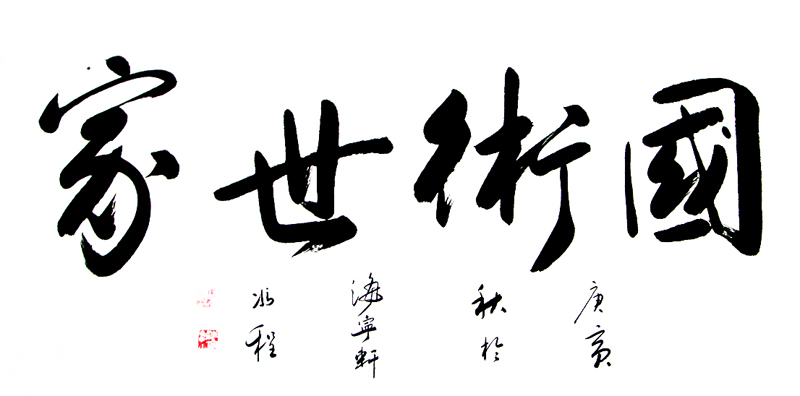 國術世家
庚寅
秋於
海寧軒
冰程